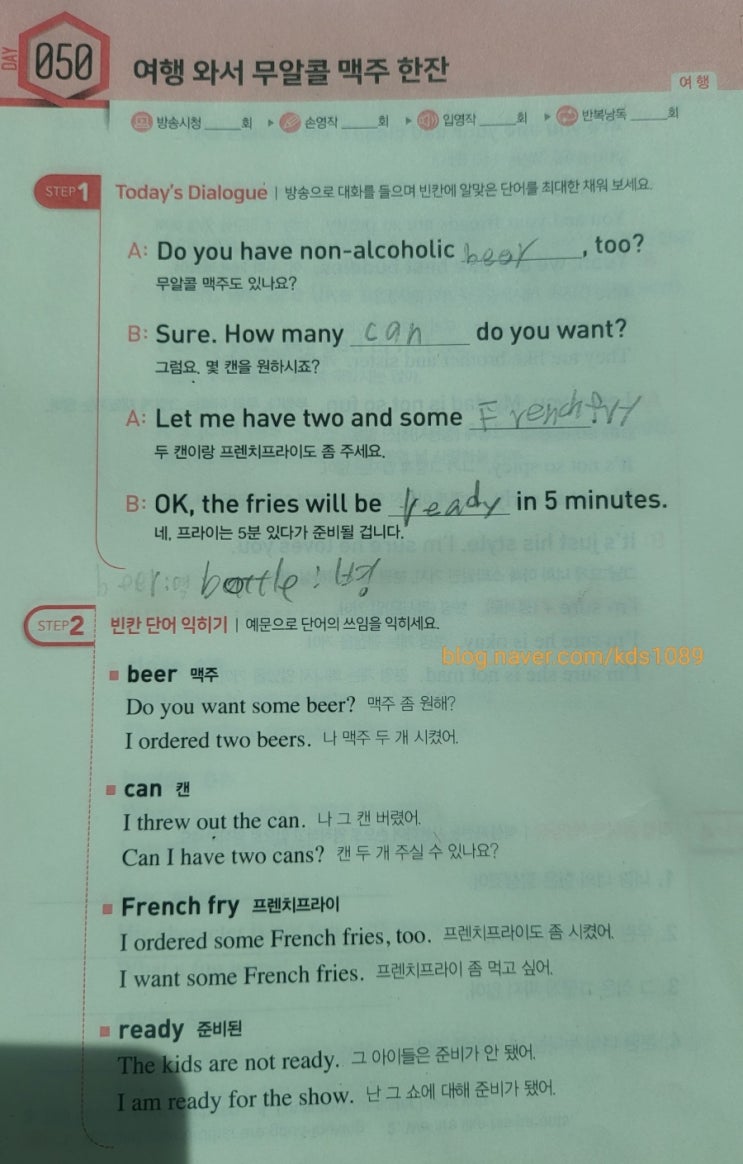 DAY 050 여행 와서 무알콜 맥주 한잔
여행
방송시청 _____회 ▸ 손영작 _____회 ▸ 입영작 _____회 ▸ 반복낭독 _____회
STEP1 Today's Dialogue | 방송으로 대화를 들으며 빈칸에 알맞은 단어를 최대한 채워 보세요.
A: Do you have non-alcoholic beer, too?
무알콜 맥주도 있나요?
B: Sure. How many can do you want?
그럼요. 몇 캔을 원하시죠?
A: Let me have two and some
두 캔이랑 프렌치프라이도 좀 주세요.
B: OK, the fries will be ready in 5 minutes.
네, 프라이는 5분 있다가 준비될 겁니다.
bottle : 병
STEP2 빈칸 단어 익히기 | 예문으로 단어의 쓰임을 익히세요.
blog.naver.com/kds1089
beer 맥주
Do you want some beer? 맥주 좀 원해?
I ordered two beers. 나 맥주 두 개 시켰어.
can 캔
I threw out the can. 나 그 캔 버렸어.
Can I have two cans? 캔 두 개 주실 수 있나요?
French fry 프렌치프라이
I ordered some French fries, too. 프렌치프라이도 좀 시켰어.
I want some French fries. 프렌치프라이 좀 먹고 싶어.
ready 준비된
The kids are not ready. 그 아이들은 준비가 안 됐어.
I am ready for the show. 난 그 쇼에 대해 준비가 됐어.